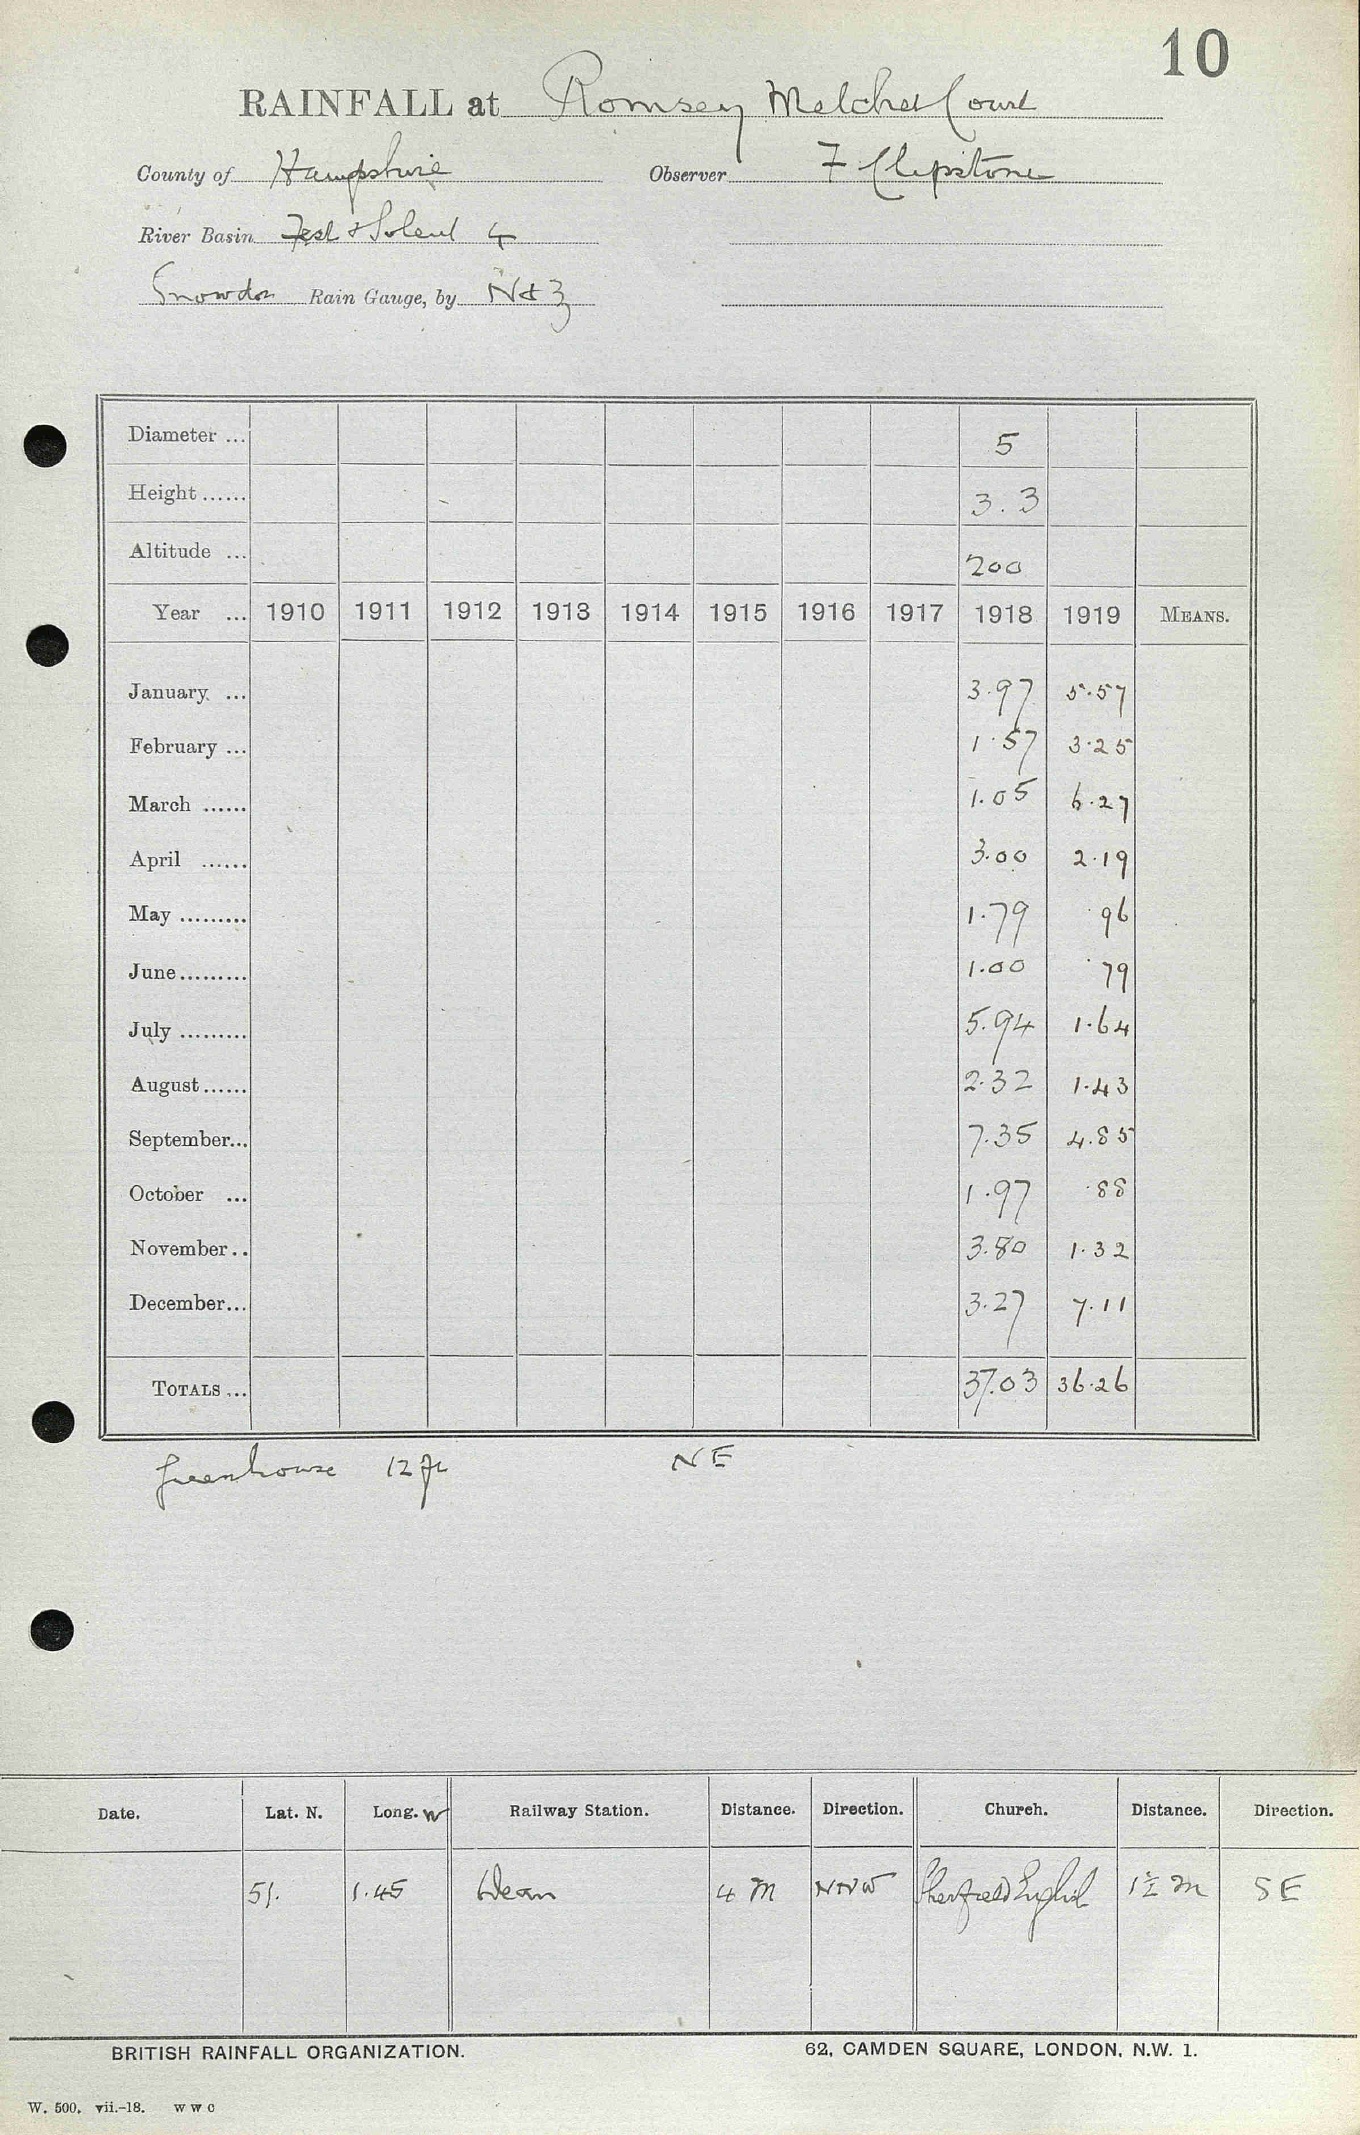 10
RAINFALL at Romsey Melchet Court
County of Hampshire Observer F Clipstone
River Basin Test & Solent 4
Snowdon Rain Gauge, by N & Z
Diameter ... 5
Height ...... 3.3
Altitude ... 200
Year ... 1910 1911 1912 1913 1914 1915 1916 1917 1918 1919 MEANS.
January ... 3.97 5.57
February ... 1.57 3.25
March ...... 1.05 6.27
April ...... 3.00 2.19
May ......... 1.79 .96
June ......... 1.00 .79
July ......... 5.94 1.64
August ...... 2.32 1.43
September... 7.35 4.85
October ... 1.97 .88
November .. 3.80 1.32
December... 3.27 7.11
TOTALS ... 37.03 36.26
Greenhouse 12 ft NE
Date. Lat. N. Long. W Railway Station. Distance. Direction. Church. Distance. Direction.
51. 1.45 Dean 4 m NNW Sherfield English 1½ m SE
BRITISH RAINFALL ORGANIZATION. 62, CAMDEN SQUARE, LONDON, N.W. 1.
W. 500. vii.-18. W W C